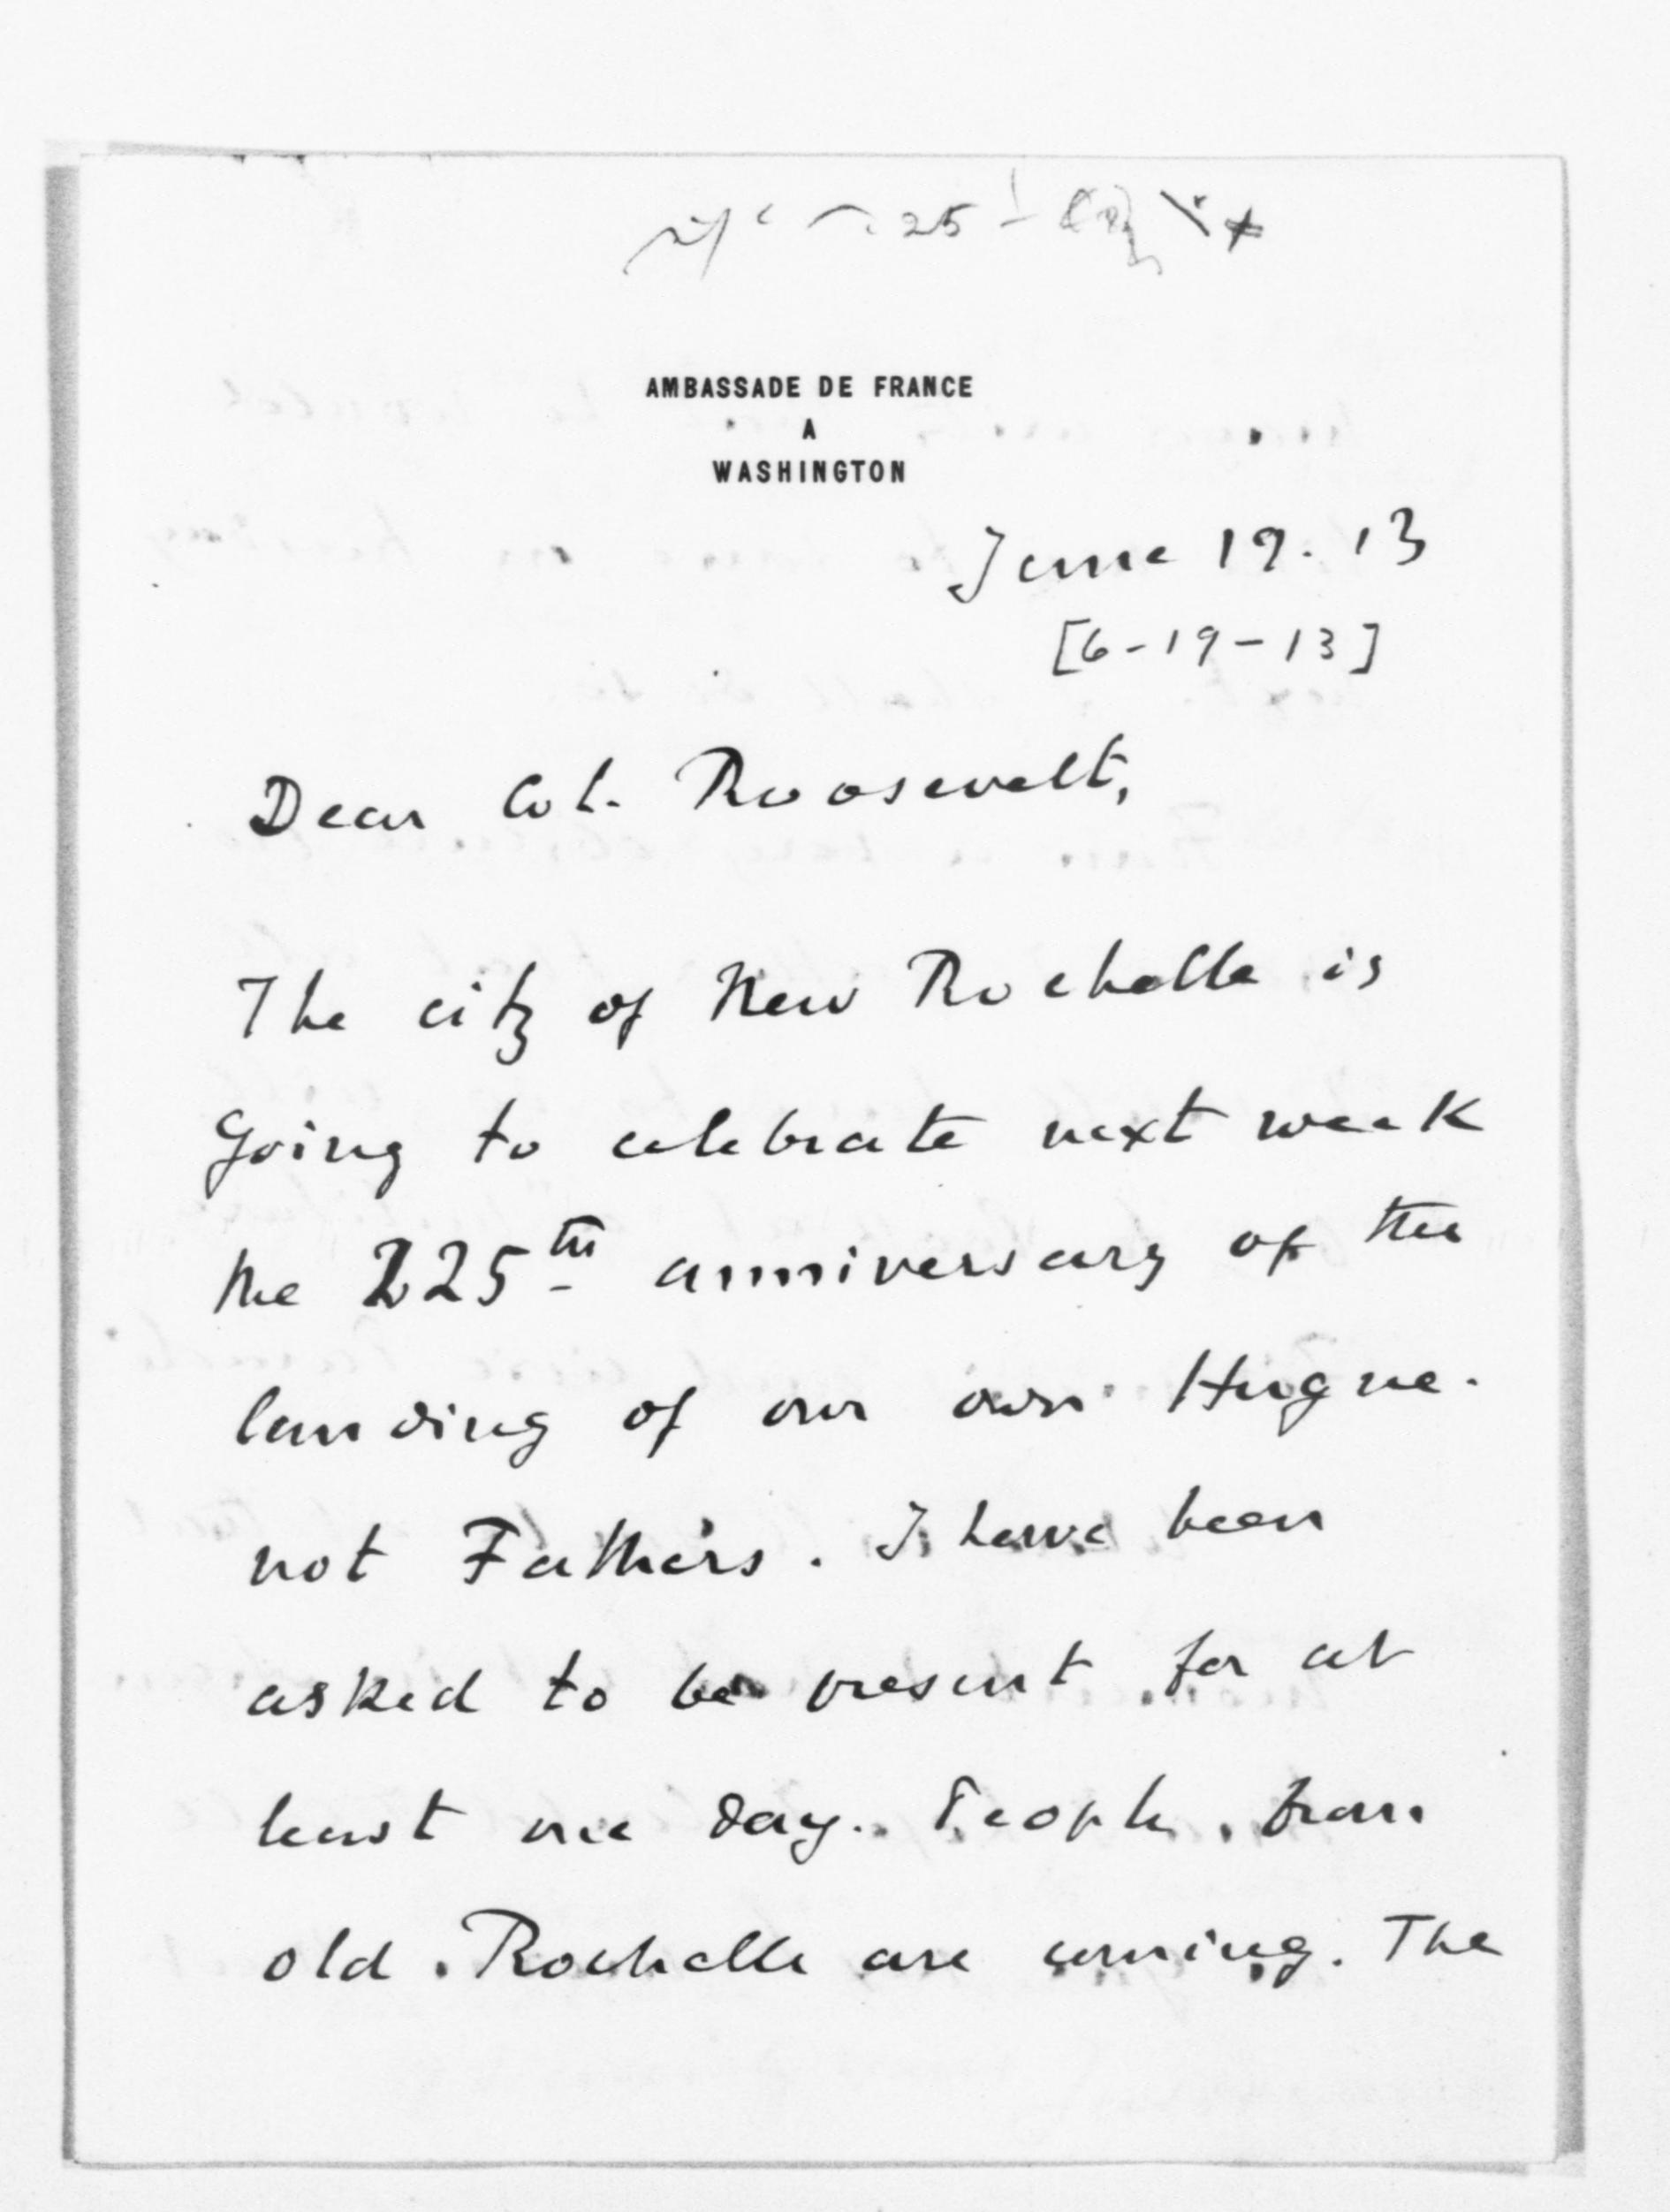 25
AMBASSADE DE FRANCE
A
WASHINGTON
June 19. 13
[6-19-13]
Dear Col. Roosevelt,
The city of New Rochelle is
going to celebrate next week
the 225th anniversary of the
landing of our own Hugue-
not Fathers. I have been
asked to be present for at
least one day. People from
old Rochelle are coming. The